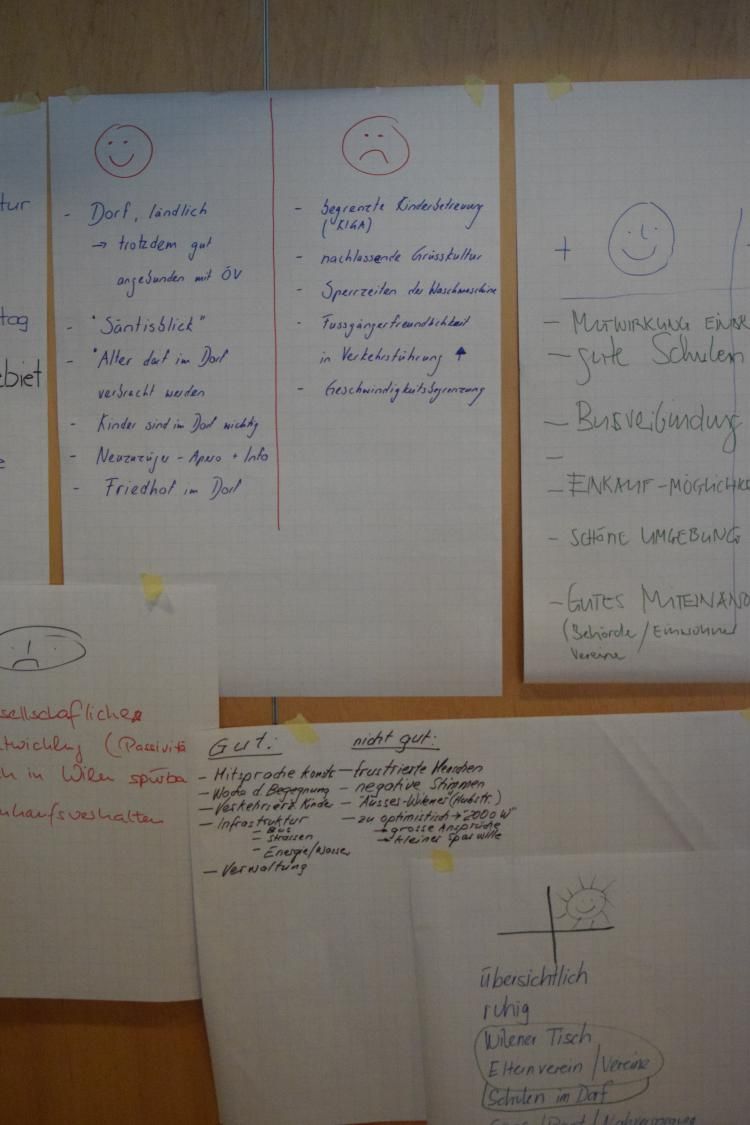 tur
tag
ebiet
e
- Dorf, ländlich
→ trotzdem gut
angebunden mit ÖV
- "Säntisblick"
- "Alter darf im Dorf
verbracht werden
- Kinder sind im Dorf wichtig
- Neuzuzüger - Apero + Info
- Friedhof im Dorf
- begrenzte Kinderbetreuung
(KIGA)
- nachlassende Grüsskultur
- Sperrzeiten der Waschmaschine
- Fussgängerfreundlichkeit
in Verkehrsführung ↑
- Geschwindigkeitsbegrenzung
+
- MITWIRKUNG
- gute Schulen
- Busverbindung
-
- EINKAUF-MÖGLICHKE
- SCHÖNE UMGEBUNG
- GUTES MITEINAND
(Behörde / Einwohner
Vereine
sellschaftliches
twicklng (Passivitä
h in Wilen spürba
nkaufsverhalten
Gut:
- Mitsprache
- Woche d. Begegnung
- Verkehrserz. Kinder
- Infrastruktur
- Bus
- Strassen
- Energie/Wasser
- Verwaltung
nicht gut:
- frustrierte Menschen
- negative Stimmen
- "Ausses-Wilemer" (Hubstr.)
- zu optimistisch → "2000 W"
→ grosse Ansprüche
→ kleiner Sparwille
übersichtlich
ruhig
Wilener Tisch
Elternverein / Vereine
Schulen im Dorf